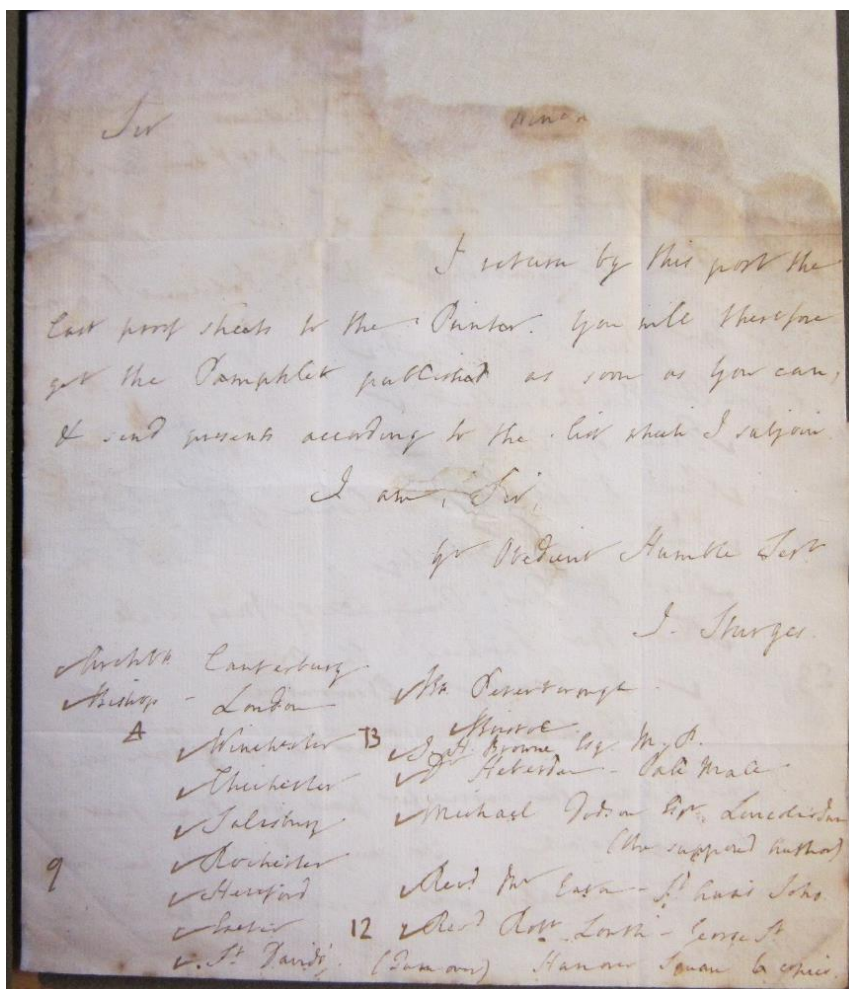 Sir
I return by this post the
last proof sheets to the Printer. You will therefore
get the Pamphlet published as soon as you can,
& send presents according to the list which I subjoin
I am, Sir,
yr Obedient Humble Servt
J. Sturges.
Archbp Canterbury
Bishop - London
A
Winchester
Chichester
Salisbury
9 Rochester
Hereford
Exeter
St Davids,
Bp Peterborough
Bristol
B
J. H. Browne Esq. M. P.
Dr Heberden - Pall Mall
Michael Dodson Esqr.
(the supposed Author)
Revd Mr Eaton - St Anns Soho
12 Revd Robt Lowth - George St
(Turn over) Hanover Square 6 copies.